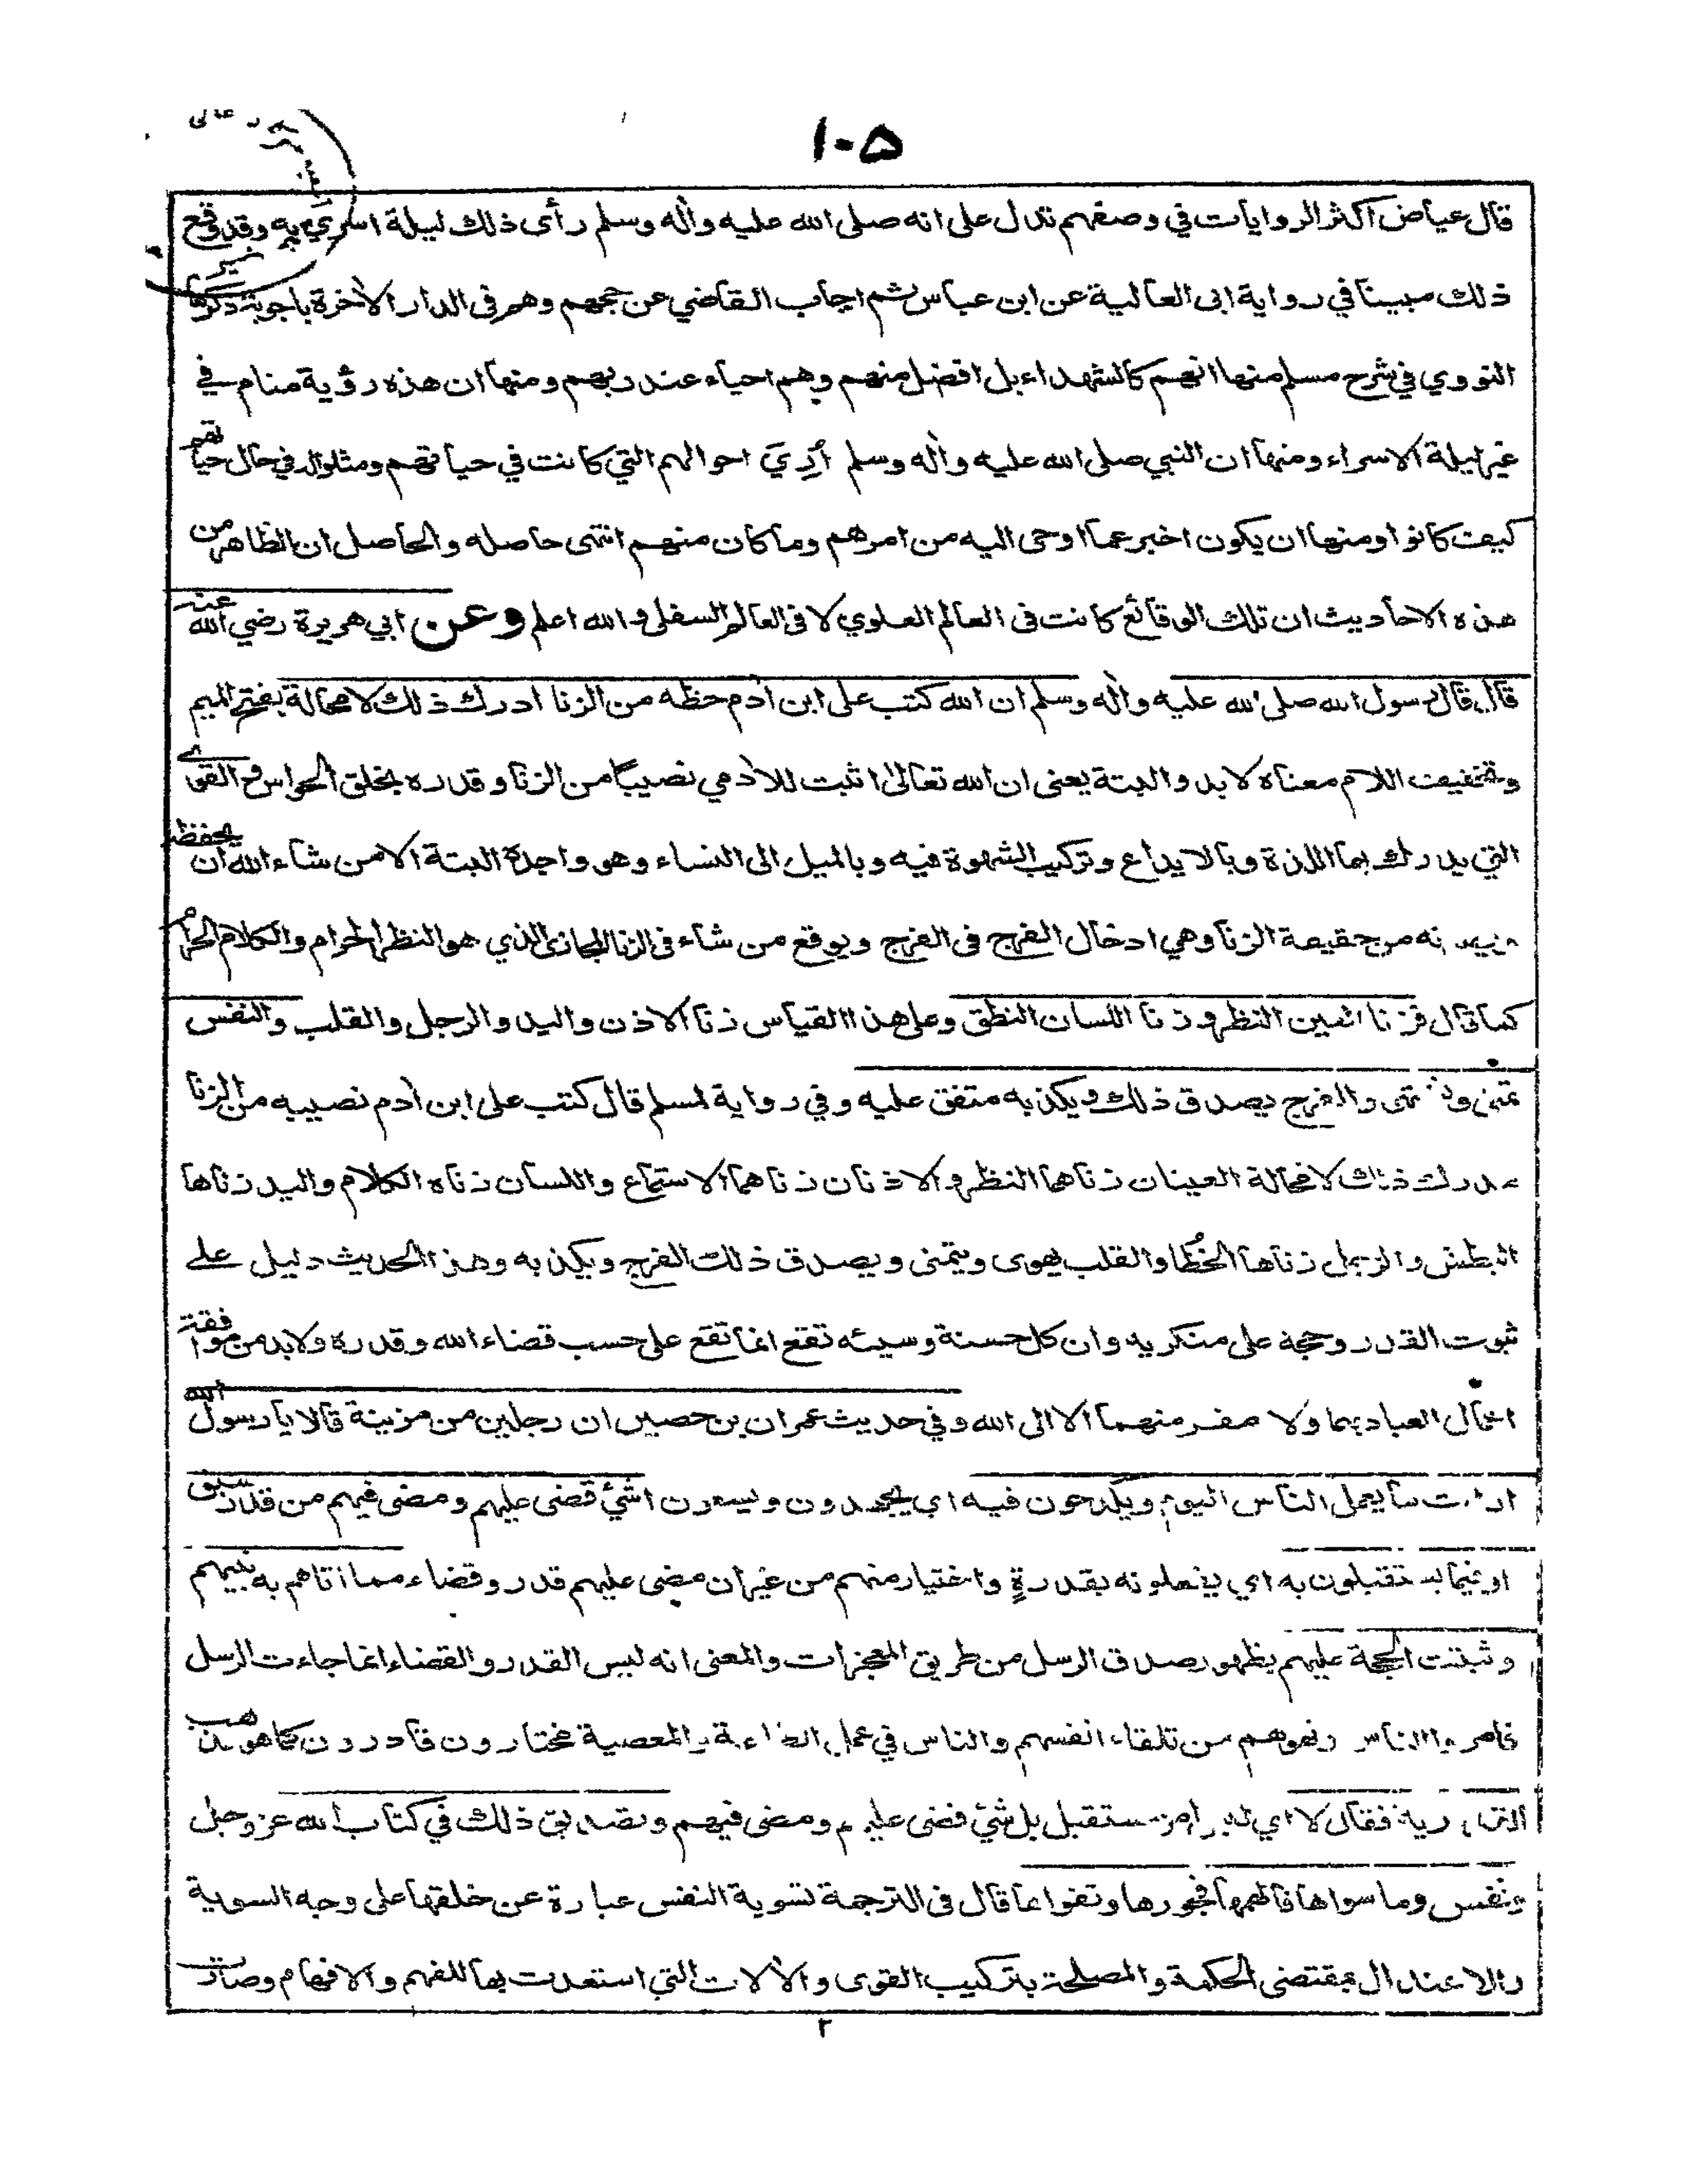 ١٠۵
قال عياض اكثر الروايات في وصفهم تدل على انه صلى الله عليه واٰله وسلم رأى ذلك ليلة اسري به وقد وقع
ذلك مبينا في رواية ابى العالية عن ابن عباس ثم اجاب القاضي عن حجهم وهم فى الدار الاٰخرة باجوبة ذكرها
النووي في شرح مسلم منها انهم كالشهداء بل افضل منهم وهم احياء عند ربهم ومنها ان هذه رؤية منام في
غير ليلة الاسراء ومنها ان النبي صلى الله عليه واٰله وسلم أُرِيَ احوالهم التي كانت في حياتهم ومثلوا له في حال حياتهم
كيف كانوا ومنها ان يكون اخبر عما اوحى اليه من امرهم وما كان منهم انتهى حاصله والحاصل ان الظاهر من
هذه الاحاديث ان تلك الوقائع كانت فى العالم العلوي لا فى العالم السفلى والله اعلم وعن ابي هريرة رضي الله عنه
قال قال رسول الله صلى الله عليه واٰله وسلم ان الله كتب على ابن اٰدم حظه من الزنا ادرك ذلك لا محالة بفتح الميم
وتخفيف اللام معناه لا بد والبتة يعنى ان الله تعالىٰ اثبت للاٰدمي نصيبا من الزنا وقدره بخلق الحواس والقوى
التي يدرك بها اللذة وبالايداع وتركيب الشهوة فيه وبالميل الى النساء وهو واجدة البتة الا من شاء الله ان يحفظه
من حقيقة الزنا وهي ادخال الفرج فى الفرج ويوقع من شاء فى الزنا المجازى الذي هو النظر الحرام والكلام الحرام
كما قال فزنا العين النظر وزنا اللسان النطق وعلى هذا القياس زنا الاذن واليد والرجل والقلب والنفس
تمنى وتشتهى والفرج يصدق ذلك ويكذبه متفق عليه وفي رواية لمسلم قال كتب على ابن اٰدم نصيبه من الزنا
مدرك ذلك لا محالة العينان زناهما النظر والاذنان زناهما الاستماع واللسان زناه الكلام واليد زناها
البطش والرجل زناها الخُطا والقلب يهوى ويتمنى ويصدق ذلك الفرج ويكذبه وهذا الحديث دليل على
ثبوت القدر وحجة على منكريه وان كل حسنة وسيئه تقع انما تقع على حسب قضاء الله وقدره ولا بد من موافقة
اعمال العباد بهما ولا مفر منهما الا الى الله وفي حديث عمران بن حصين ان رجلين من مزينة قالا يا رسول الله
ارايت ما يعمل الناس اليوم ويكدحون فيه اي يجهدون ويسعون اشئ قضى عليهم ومضى فيهم من قدر سبق
او فيما يستقبلون به اي يفعلونه بقدرةٍ واختيار منهم من غير ان مضى عليهم قدر وقضاء مما اتاهم به نبيهم
وثبتت الحجة عليهم بظهور صدق الرسل من طريق المعجزات والمعنى انه ليس القدر والقضاء انما جاءت الرسل
فامروا الناس ونهوهم من تلقاء انفسهم والناس في عمل الطاعة والمعصية مختارون قادرون كما هو مذهب
القدرية فقال لا اي ليس امر مستقبل بل شئ قضى عليهم ومضى فيهم وتصديق ذلك في كتاب الله عز وجل
ونفس وما سواها فالهمها فجورها وتقواها قال فى الترجمة تسوية النفس عبارة عن خلقها على وجه السوية
والاعتدال بمقتضى الحكمة والمصلحة بتركيب القوى والاٰلات التي استعدت بها للفهم والافهام وصارت
٢